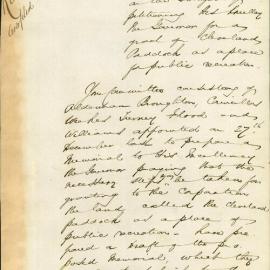 petitioning His Excellency
the Governor for a
grant of Cleveland
Paddock as a place
for public recreation.
The Committee consisting of
Alderman Broughton, Councillors
Flood and
Williams appointed on 27th
December last to prepare a
Memorial to His Excellency
the Governor praying that the
necessary steps be taken for
granting to the Corporation
the land called the Cleveland
Paddock as a place of
public recreation - have pre
pared a draft of the pro
posed Memorial, which they